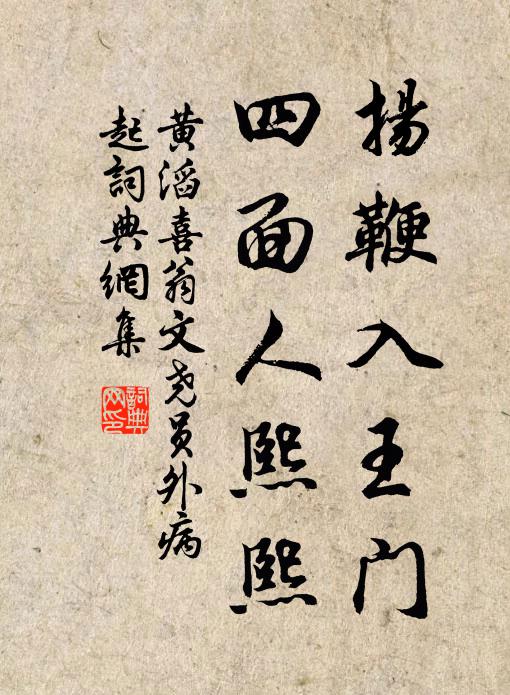 揚鞭入王門
四面人熙熙
黄滔喜翁文尧員外病
起詞典網集
詞典
网印